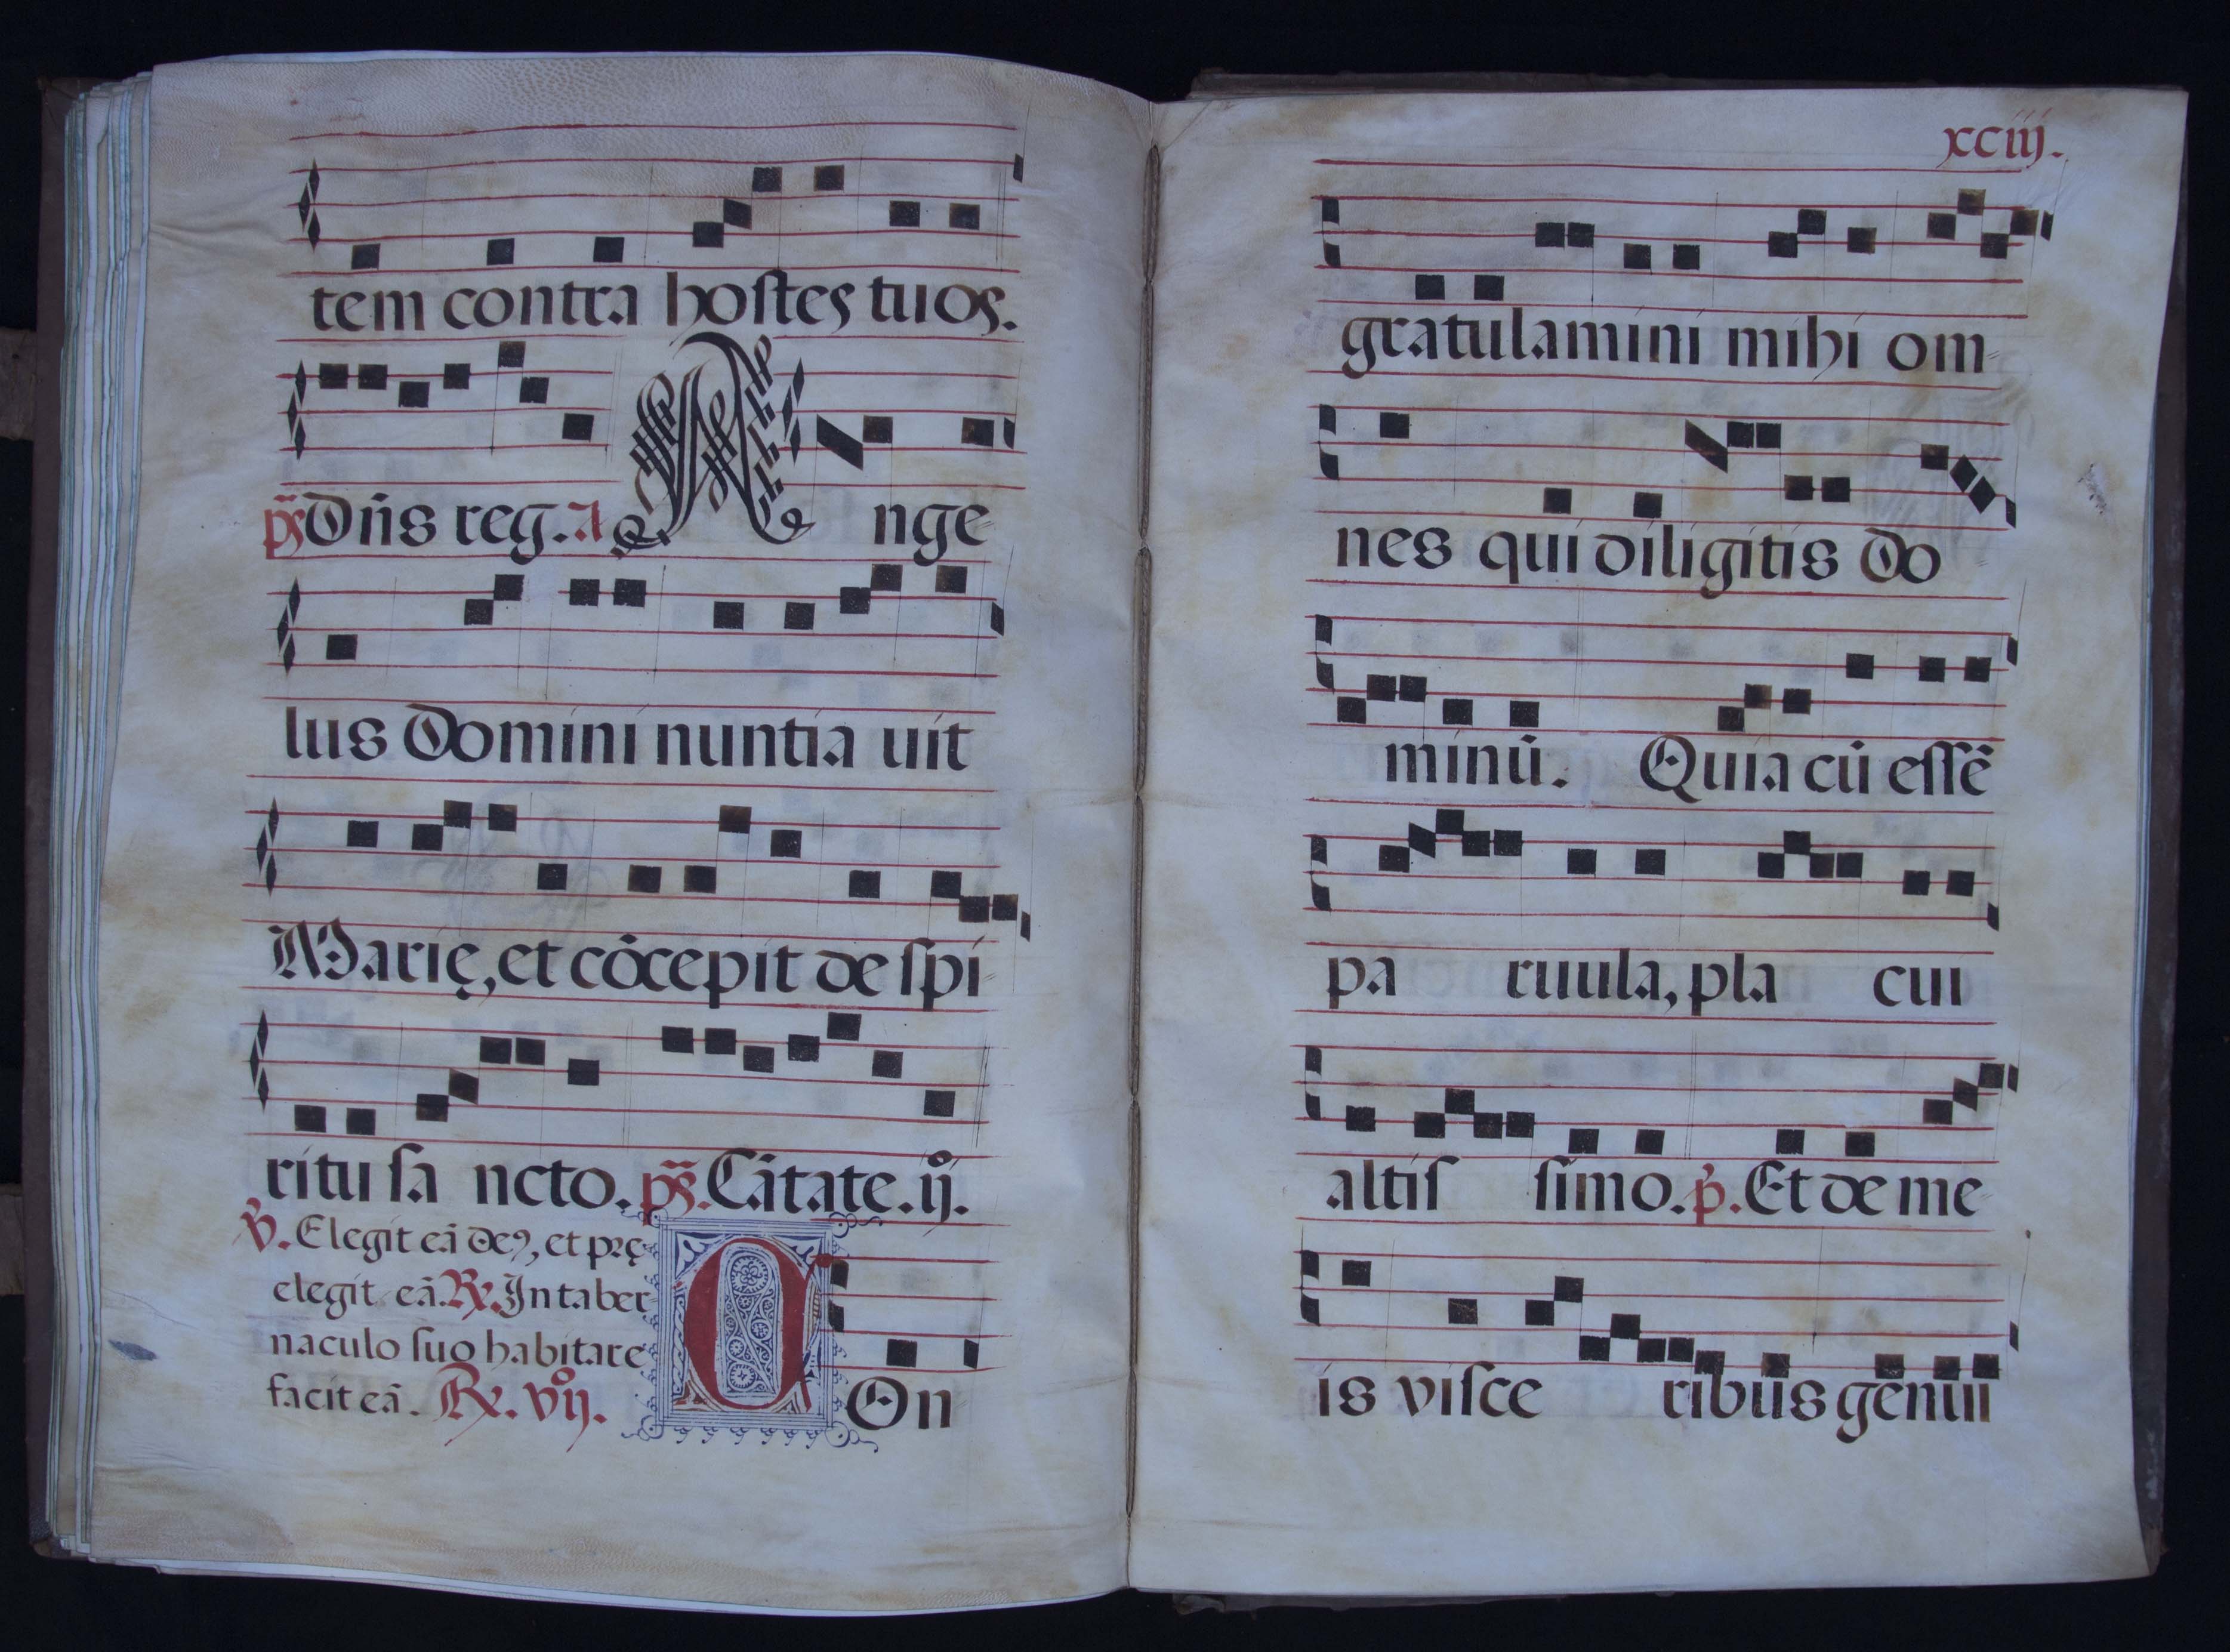 tem contra hoſtes tuos.
ps̃ Dñs reg. A Ange
lus Domini nuntia uit
Marię, et cõcepit de ſpi
ritu ſa ncto. ps̃. Cãtate. ij.
℣. Elegit eã deꝰ, et pꝛę
elegit eã. ℟. In taber
naculo ſuo habitare
facit eã. ℟. vij.
COn
xciij.
gratulamini mihi om
nes qui diligitis Do
minũ. Quia cũ eſſẽ
pa ruula, pla cui
altiſ ſimo. p̃. Et de me
is viſce ribus genui